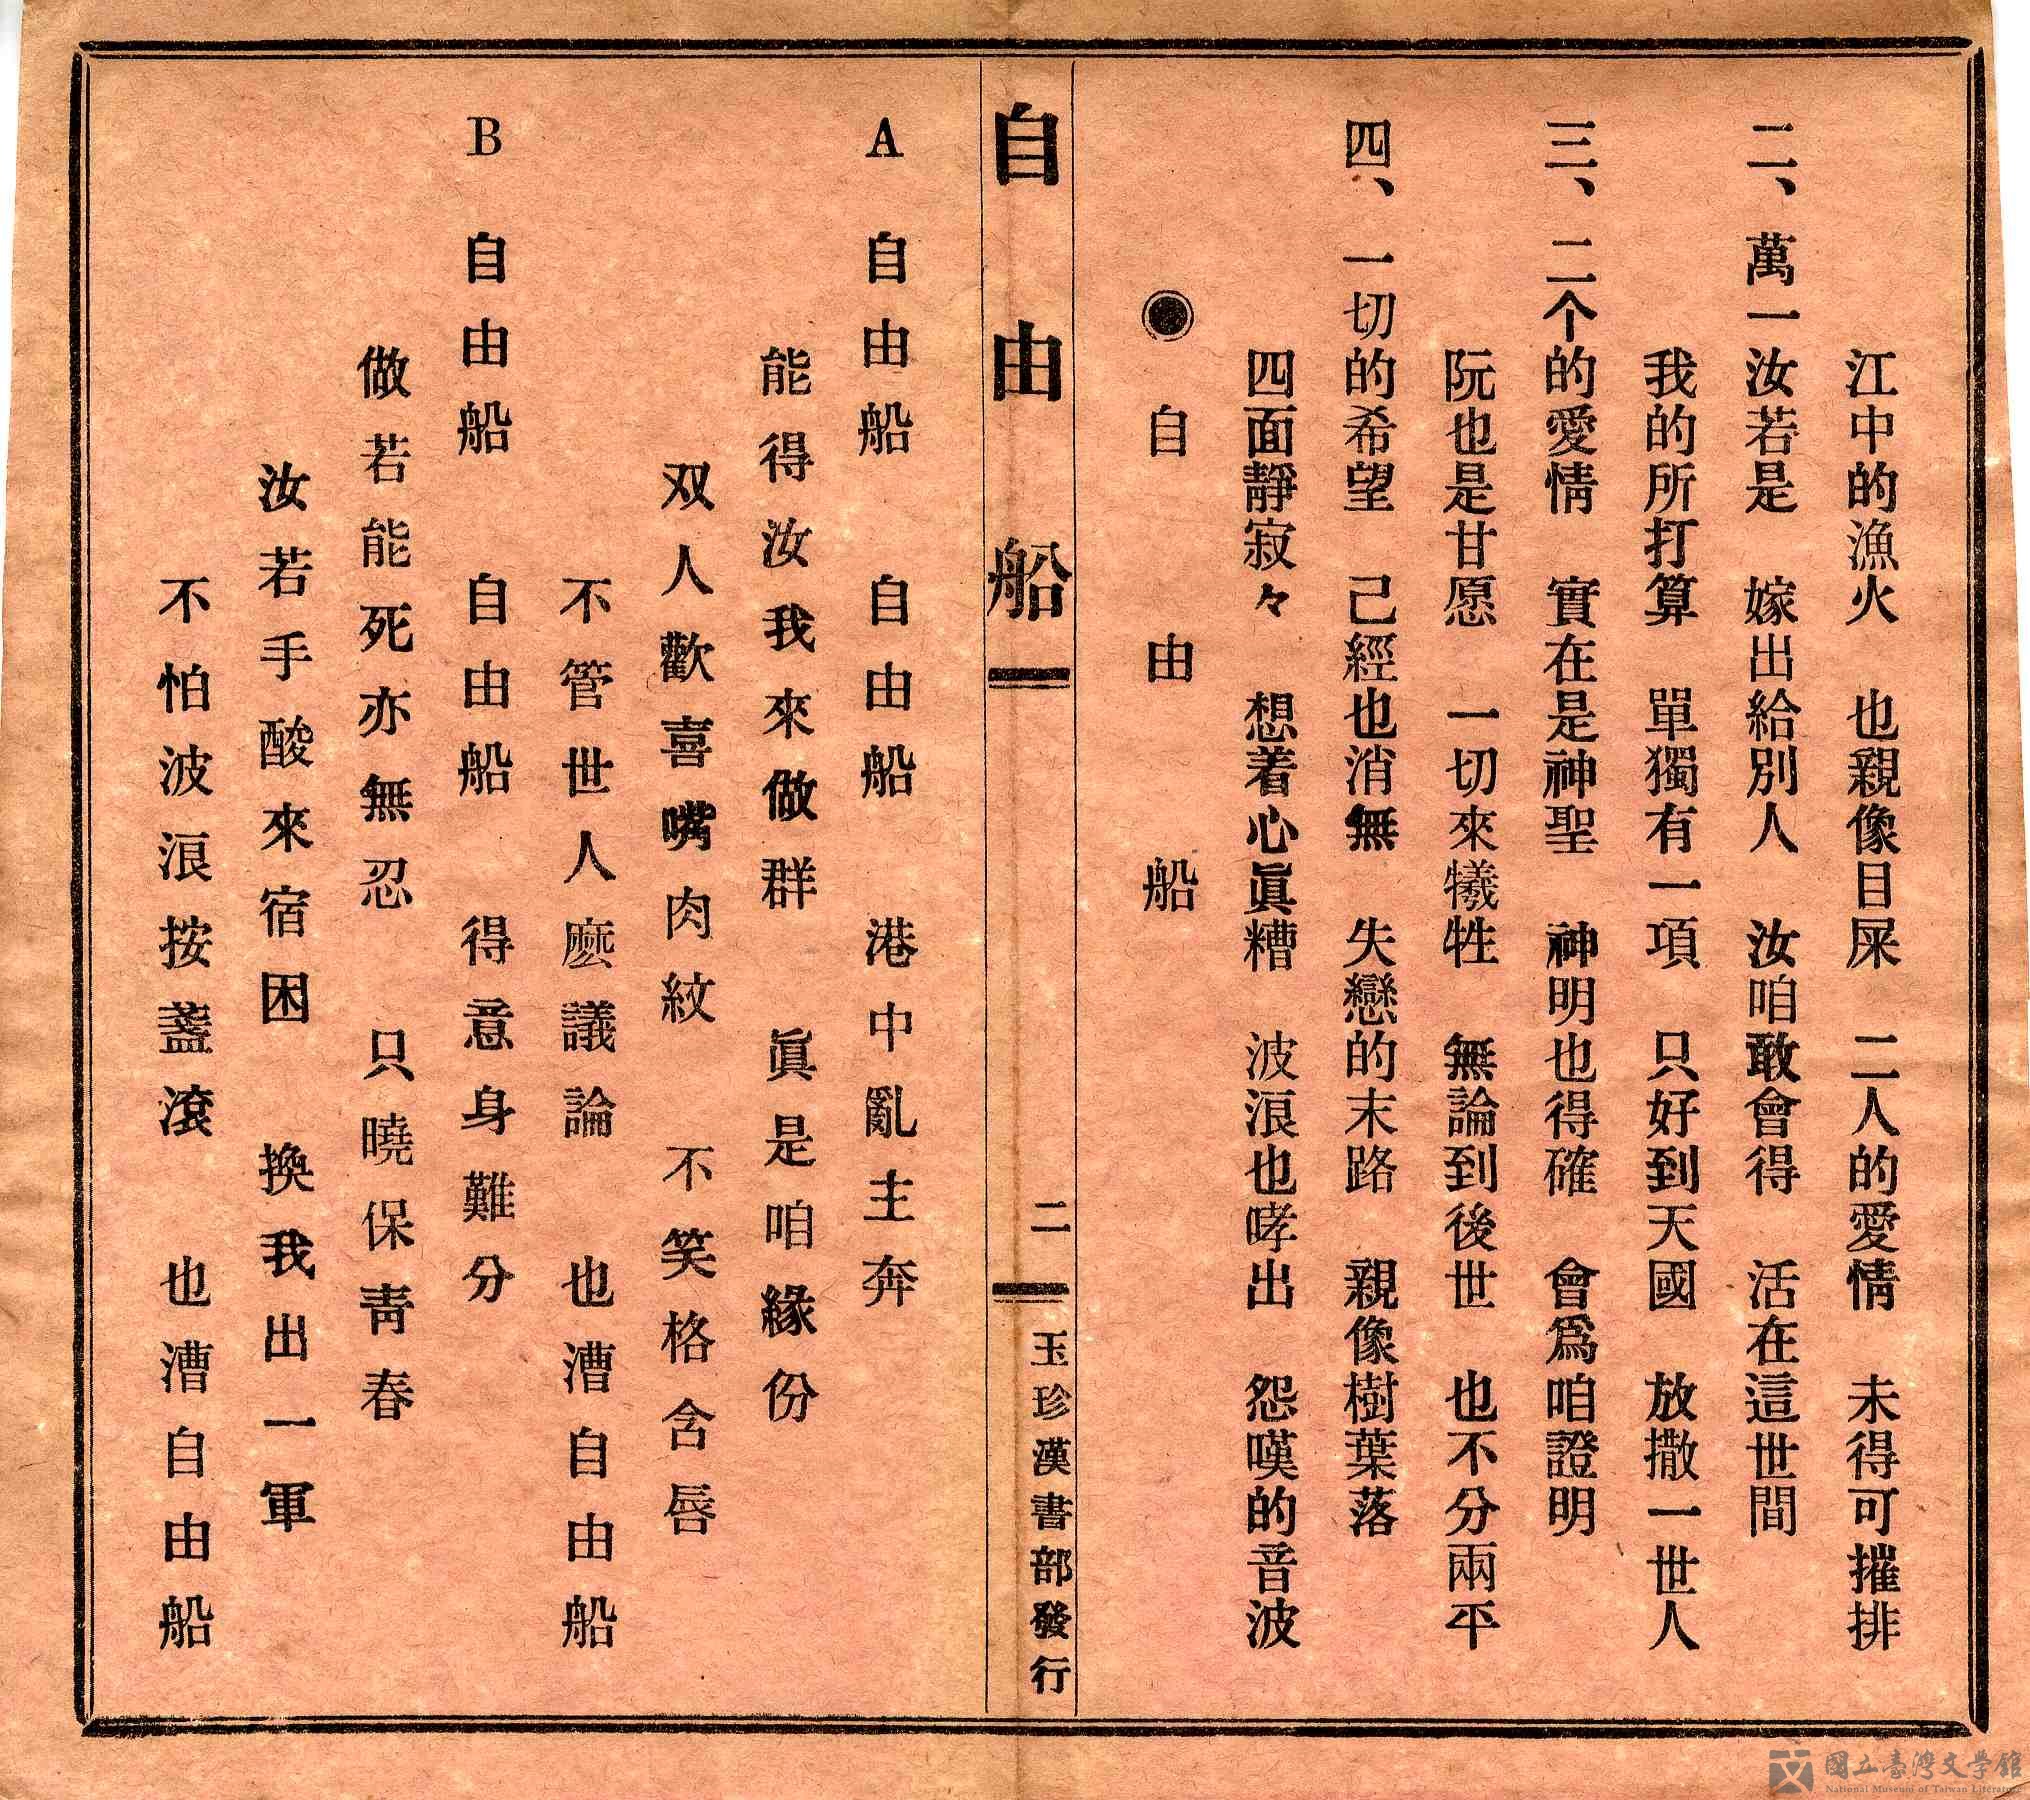 江中的漁火　也親像目屎　二人的愛情　未得可摧排
二、萬一汝若是　嫁出給別人　汝咱敢會得　活在這世間
我的所打算　單獨有一項　只好到天國　放撒一世人
三、二个的愛情　實在是神聖　神明也得確　會爲咱證明
阮也是甘愿　一切來犧牲　無論到後世　也不分兩平
四、一切的希望　己經也消無　失戀的末路　親像樹葉落
四面靜寂々　想着心眞糟　波浪也哮出　怨嘆的音波
◉自由船
自由船　二　玉珍漢書部發行
A　自由船　自由船　港中亂主奔
能得汝我來做群　眞是咱緣份
双人歡喜嘴肉紋　不笑格含唇
不管世人麽議論　也漕自由船
B　自由船　自由船　得意身難分
做若能死亦無忍　只曉保靑春
汝若手酸來宿困　換我出一軍
不怕波浪按盞滾　也漕自由船
國立臺灣文學館
National Museum of Taiwan Literature